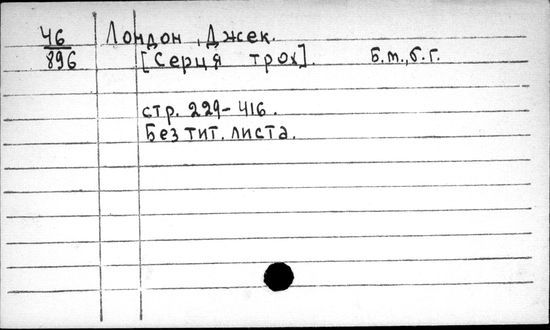 46 Лондон, Джек.
896 [Серця трох]. Б.м., б.г.
стр. 229-416.
Без тит. листа.